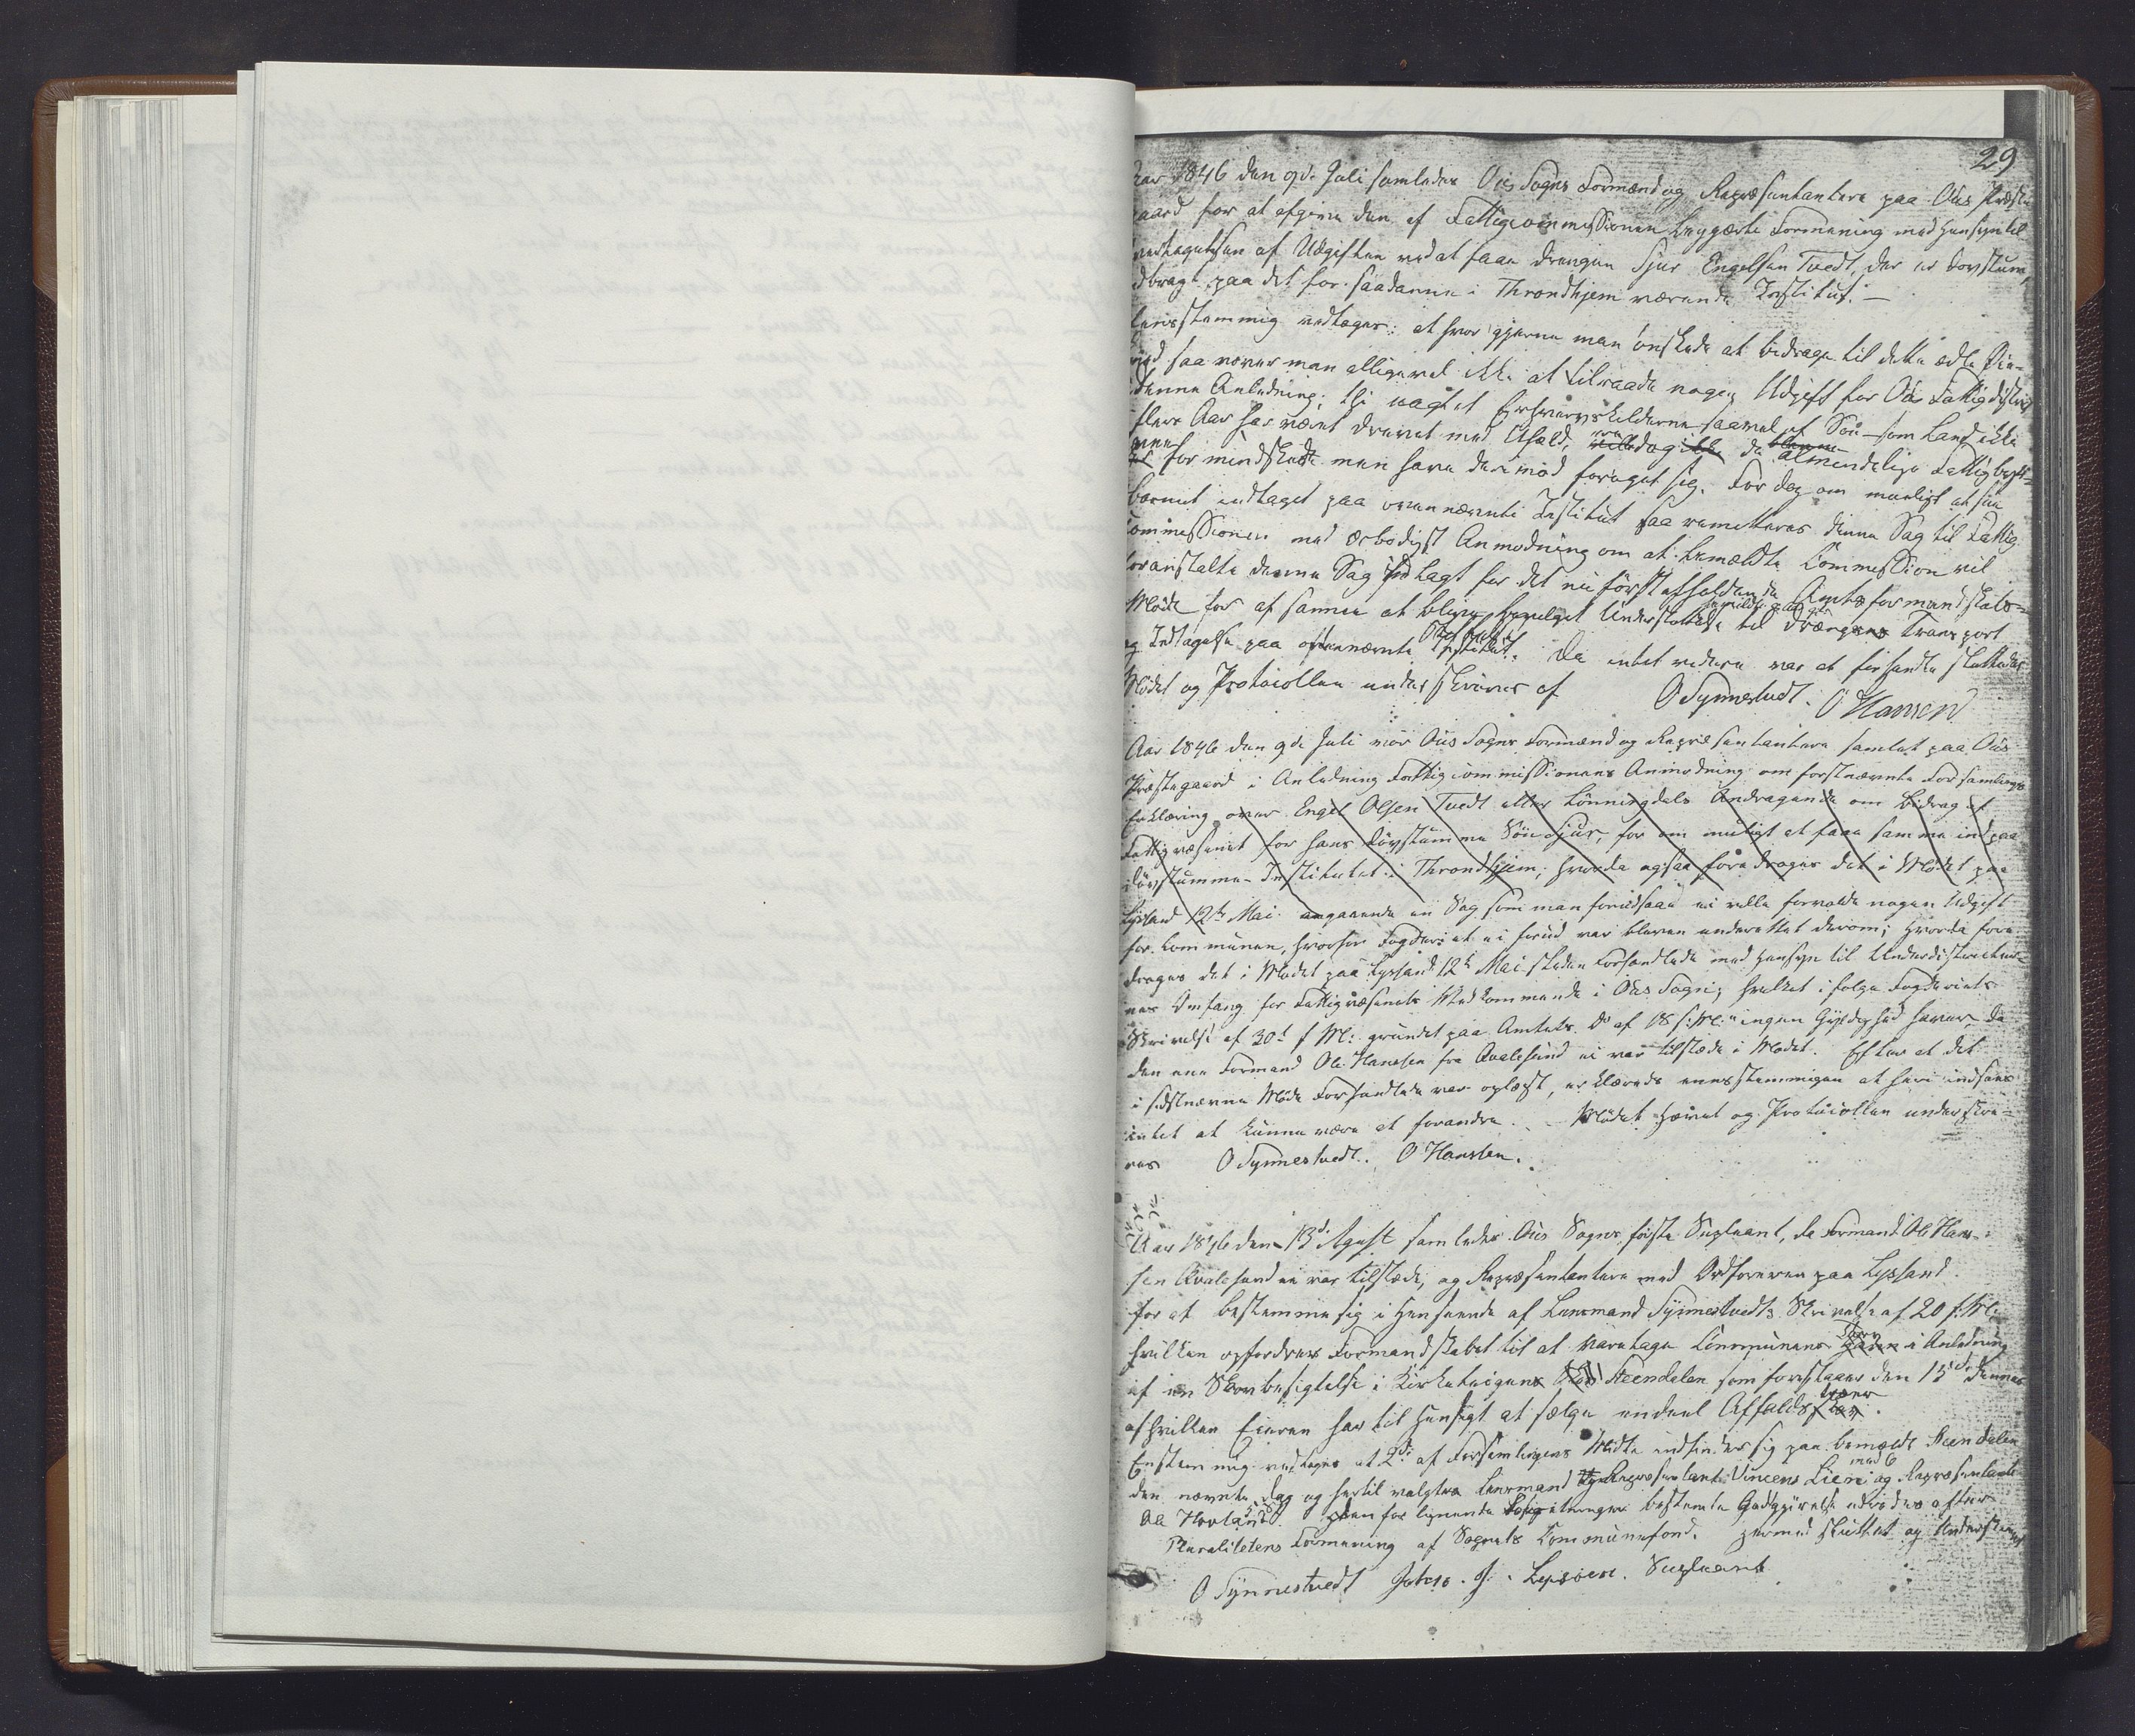 29
Aar 1846 den 9de Juli samledes Ous Sogns Formænd og Repræsentantere paa Ous Præste
gaard for at afgive den af Fattigcommissionen begjærte Formening med Hensyn til
vedtagelsen af Udgiften ved at faae Drengen Sjur Engelsen Tvedt, der er Dovstum,
indbragt paa det for saadanne i Throndhjem værende Institut. —
Eensstemmig vedtages: at hvor gjerne man ønskede at bidrage til dette ædle Øie-
med saa vover man alligevel ikke at tilraade nogen Udgift for Ous Fattigdistrict
i denne Anledning; thi uagtet Erhvervskilderne saavel af Søe- som Land ikke
flere Aar har været drevet med Uheld, dog de almindelige Fattigbyrder
for mindskede men have derimod forøget sig. For dog om mueligt at faae
Barnet indtaget paa ovennævnte Institut saa remitteres denne Sag til Fattig
Commissionen med ærbødigst Anmodning om at bemeldte Commission vil
foranstalte denne Sag indlagt for det nu først afholdende Amtsformandskabs-
Møde for af samme at blive bevilget Understøttelse til Drengens Transport
og Indtagelse paa ovennævnte Institut. Da intet videre var at forhandle sluttedes
Mødet og Protocollen underskrives af O Synnestvedt. O Hansen
Aar 1846 den 9de Juli var Ous Sogns Formænd og Repræsentantere samlet paa Ous
Præstegaard i Anledning Fattigcommissionens Anmodning om forstnævnte Forsamlings
Erklæring over Engel Olsen Tvedt eller Lønningdals Andragende om Bidrag af
Fattigvæsenet for hans døvstumme Søn Sjur, for om muligt at faae samme ind paa
døvstumme-Institutet i Throndhjem; hvorda ogsaa foredroges det i Mødet paa
Lysand 12te Mai angaaende en Sag som man forudsaae ei ville forvolde nogen Udgift
for Kommunen, hvorfor Fogderiet ei forud var bleven underrettet derom; hvorda fore
droges det i Mødet paa Lysand 12te Mai skeden Forhandlede med Hensyn til Underdistricter-
nes Omfang for Fattigvæsenets Vedkommende i Ous Sogn; hvilket i følge Fogderiets
Skrivelse af 30te f. M: grundet paa Amtets do af 18 f: M: ingen Gyldighed haver, da
den ene Formand Ole Hanssen fra Qvalesund ei var tilstæde i Mødet. Efter at det
i sidstnævnte Møde Forhandlede var oplæst, erklærede eensstemmigen at heri indsaaes
intet at kunne være at forandre. Mødet hævet og Protocollen underskre-
ves O Synnestvedt. O Hanssen.
Aar 1846 den 13de August samledes Ous Sogns første Supleant, da Formand Ole Hans-
sen Qvalesund ei var tilstæde, og Repræsentantere med Ordføreren paa Lysand
for at bestemme sig i Henseende af Lensmand Synnestvedts Skrivelse af 20 f: M:
hvilken opfordrer Formandskabet til at varetage Communens Tarv i Anledning
af en Skovbesigtelse i Kirketeigen Steendalen som foretages den 15de dennes
af hvilken Eieren har til Hensigt at sælge endeel Affalds Træer.
Enstemmig vedtages at 2de af Forsamlingens Midte indfinder sig paa bemeldte Steendalen
den nævnte Dag og hertil valgtes Repræsentant Vincens Lien med og Repræsentant
Ole Hovland. Den for lignende bestemte Godtgjørelse udredes efter
Pluralitetens Formening af Sognets Kommunefond. Hermed sluttet og Underskrevet
O Synnestvedt Johs. J. Lepsøen. Supleant